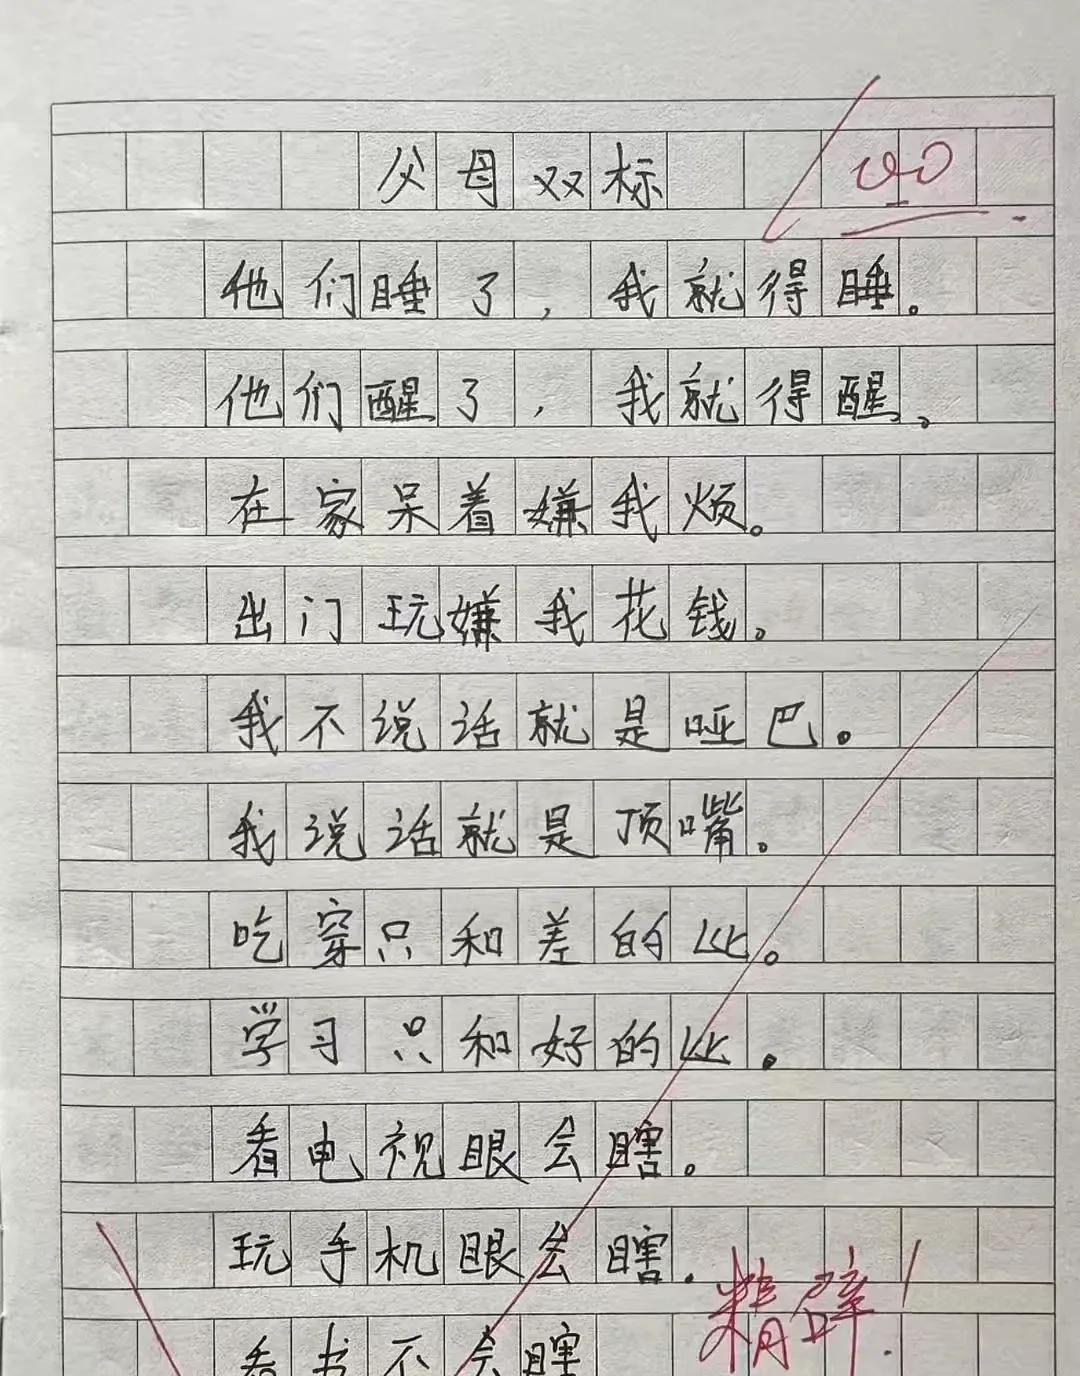 父母双标
他们睡了，我就得睡。
他们醒了，我就得醒。
在家呆着嫌我烦。
出门玩嫌我花钱。
我不说话就是哑巴。
我说话就是顶嘴。
吃穿只和差的比。
学习只和好的比。
看电视眼会瞎。
玩手机眼会瞎.
精辟!
看书不会瞎